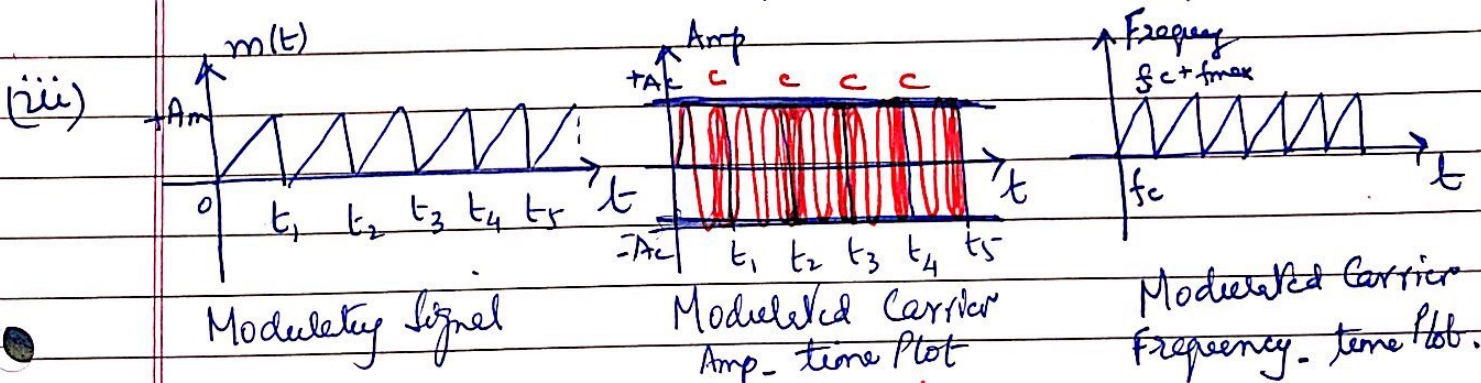 (iii)
m(t)
+Am
0
t₁ t₂ t₃ t₄ t₅ t
Modulating Signal
Amp
+Ac c c c c
-Ac
t₁ t₂ t₃ t₄ t₅
t
Modulated Carrier
Amp_ time Plot
Frequency
fc+fmax
fc
t
Modulated Carrier
Frequency_ time Plot.